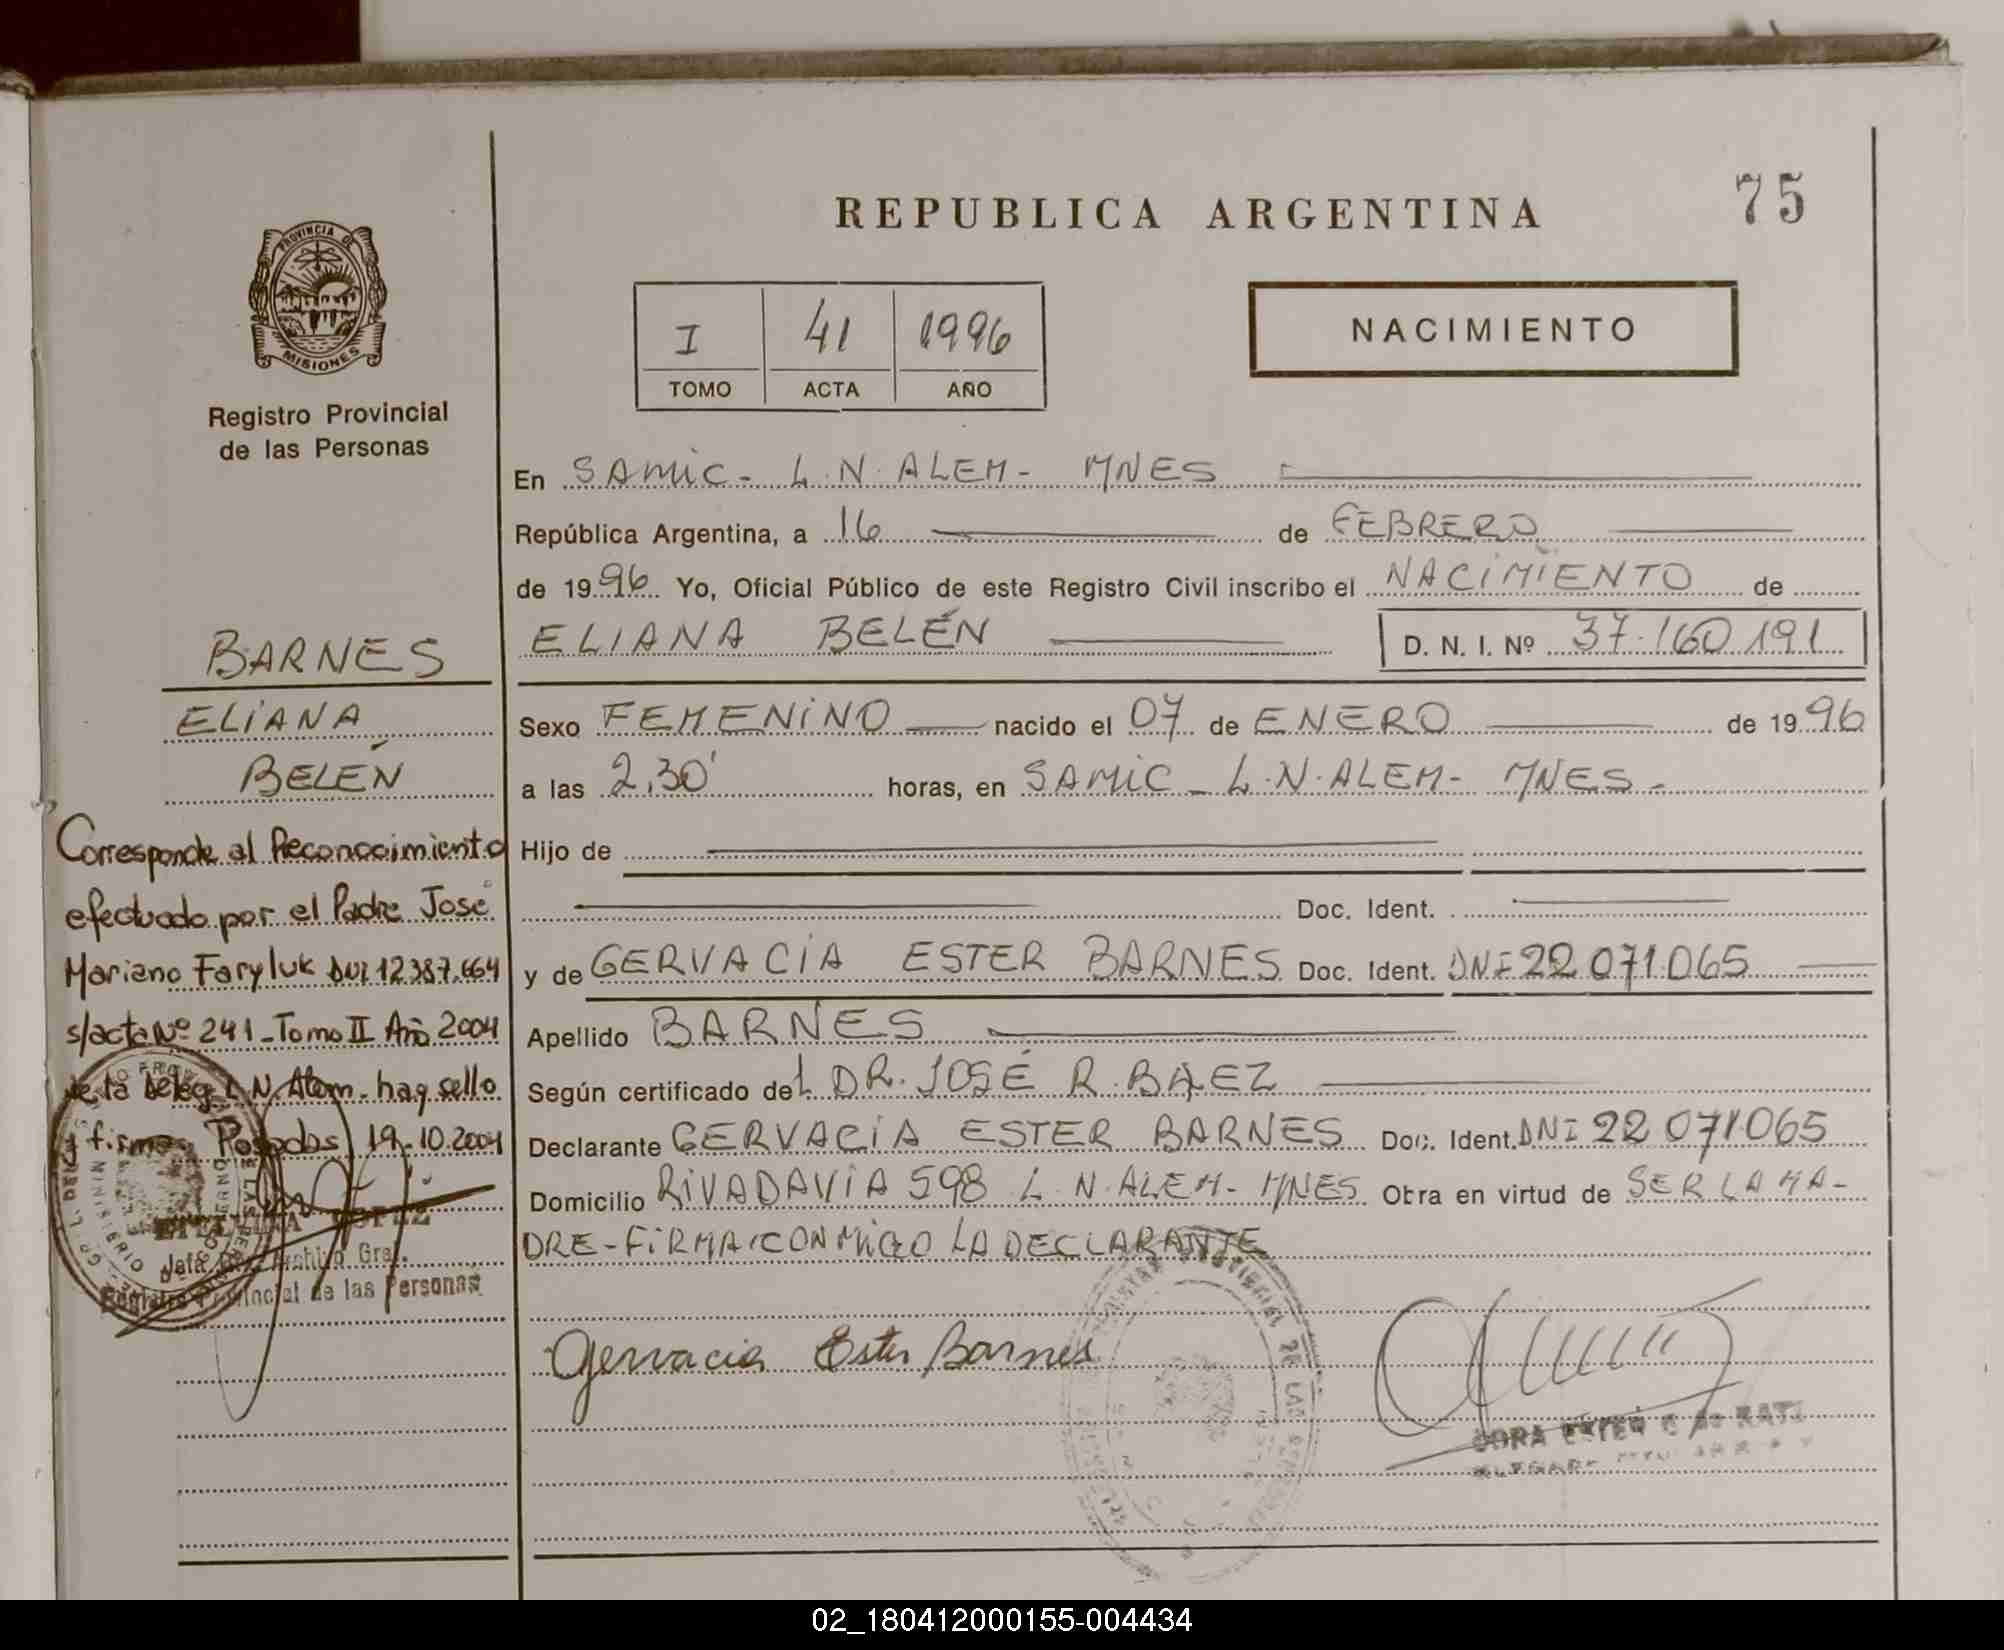 REPUBLICA ARGENTINA
75
PROVINCIA DE
MISIONES
Registro Provincial
de las Personas
I 41 1996
TOMO ACTA AÑO
NACIMIENTO
En SAMIC - L.N. ALEM - MNES
República Argentina, a 16 de FEBRERO
de 1996 Yo, Oficial Público de este Registro Civil inscribo el NACIMIENTO de
ELIANA BELÉN D. N. I. Nº 37.160.191
BARNES
ELIANA
BELÉN
Sexo FEMENINO nacido el 07 de ENERO de 1996
a las 2,30' horas, en SAMIC - L.N. ALEM - MNES -
Hijo de
Doc. Ident.
y de GERVACIA ESTER BARNES Doc. Ident. DNI 22 071.065
Apellido BARNES
Según certificado del DR. JOSÉ R. BAEZ
Declarante GERVACIA ESTER BARNES Doc. Ident. DNI 22 071065
Domicilio RIVADAVIA 598 L.N. ALEM - MNES Obra en virtud de SER LA MA-
DRE - FIRMA CON MIGO LA DECLARANTE
Corresponde al Reconocimiento
efectuado por el Padre José
Mariano Faryluk DNI 12.387.664
s/acta Nº 241 - Tomo II Año 2004
de la Deleg. L.N. Alem - hay sello
y firma - Posadas 19-10-2004
LOPEZ
Jefa Archivo Gral.
Registro Provincial de las Personas
Gervacia Ester Barnes
ESTER C. de
02_180412000155-004434